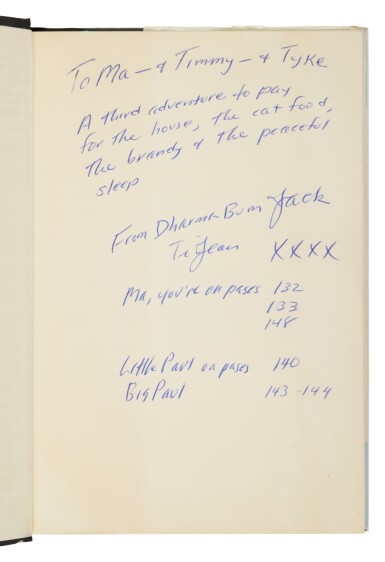 To Ma — & Timmy — & Tyke
A third adventure to pay
for the house, the cat food,
the brandy & the peaceful
sleep
From Dharma Bum Jack
Ti Jean XXXX
Ma, you're on pages 132
133
148
Little Paul on pages 140
Big Paul 143-144